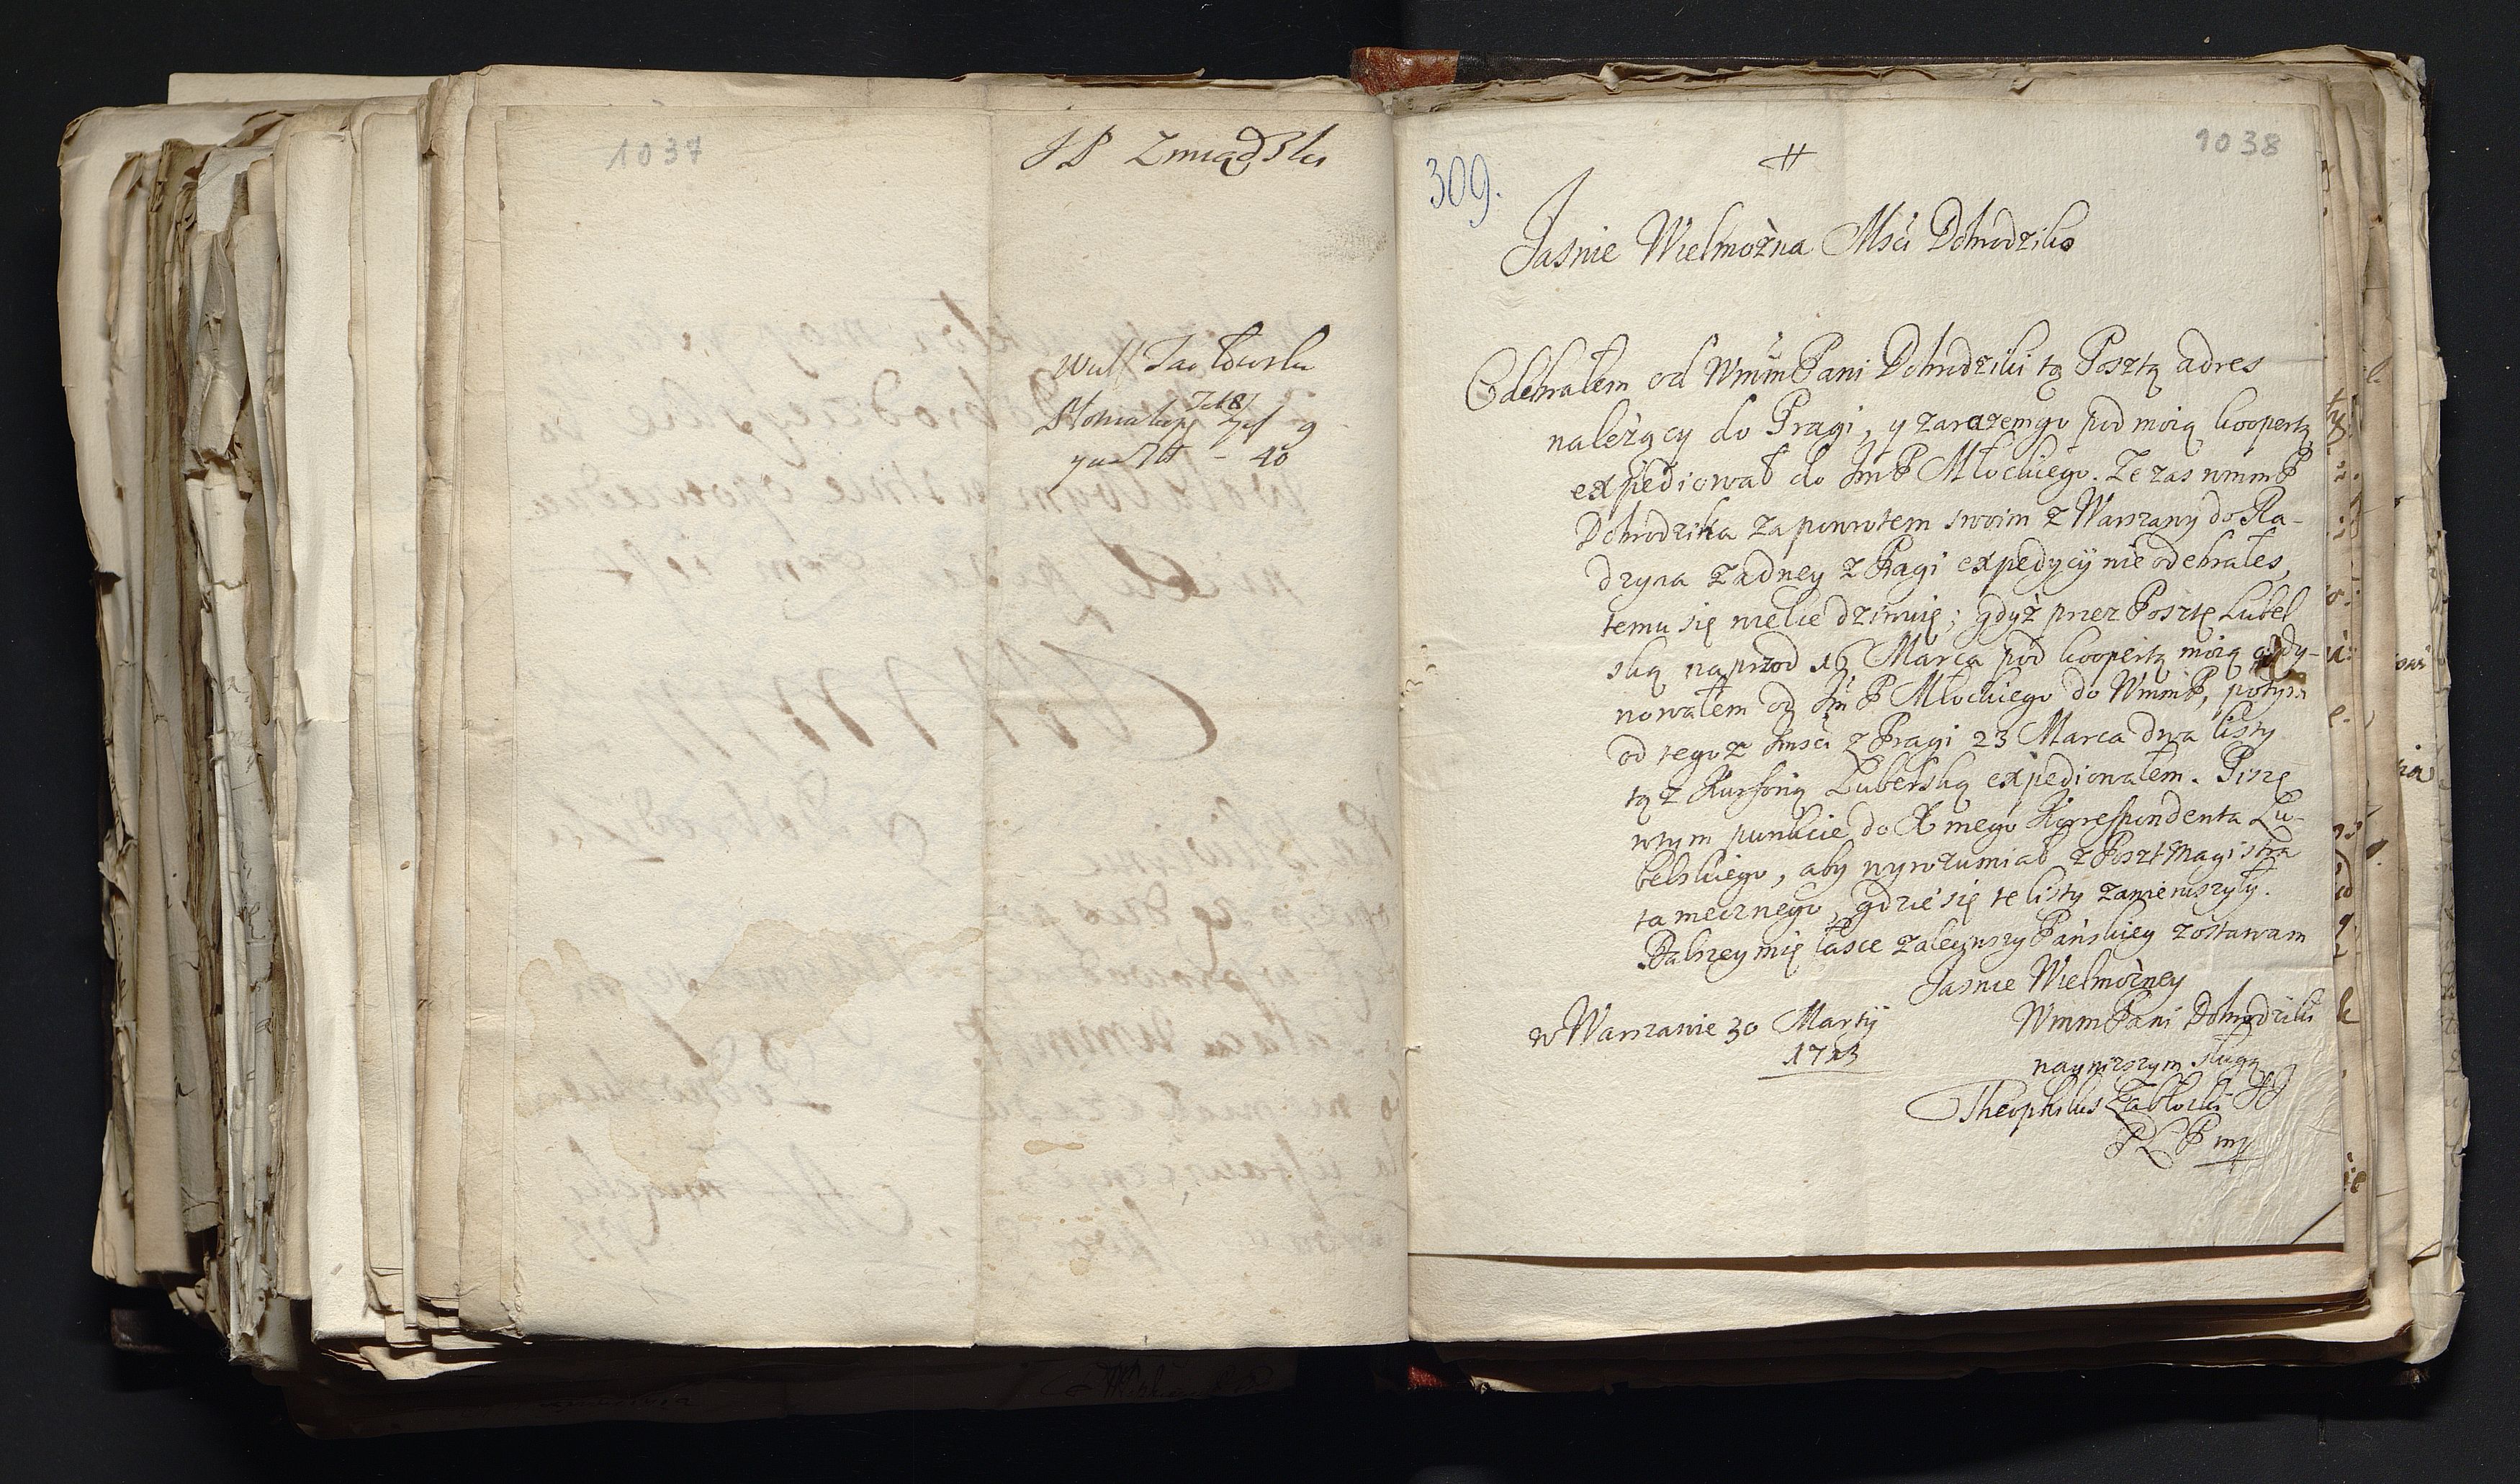 1037
JP Zmiądzki
Wulf
Tal 8
9
40
1038
309.
Jasnie Wielmożna Msći Dobrodziko
Odebrałem od WmmPani Dobrodziki tą Posztą adres
należący do Pragi, y zarazemgo pod moią koopertą
expediował do JmP Młockiego. Ze zas wmmP
Dobrodzika za powrotem swoim z Warszawy do Ra-
dzynia zadney z Pragi expedycÿ nie odebrałes,
temu się wielce dziwuię; gdyż przez Posztę Lubel
ską naprzod 16 Marca pod koopertą moią ordy-
nowałem od Jm P Młockiego do WmmP, potym
od tegoz Jmsci z Pragi 23 Marca dwa listy
tąz Kursorią Lubelską expediowałem. Piszę
wtym punkcie do X mego Korrespondenta Lu-
belskiego, aby wyrozumiał z PosztMagistra
tamecznego, gdzie się te listy zawieruszyły.
Dalszey mię łasce zaleciwszy Pańskiey zostawam
Jasnie Wielmożney
WmmPani Dobrodziki
w Warszawie 30 Martÿ
1713
naynizszym sługą
Theophilus Zabłocki
PLP mp